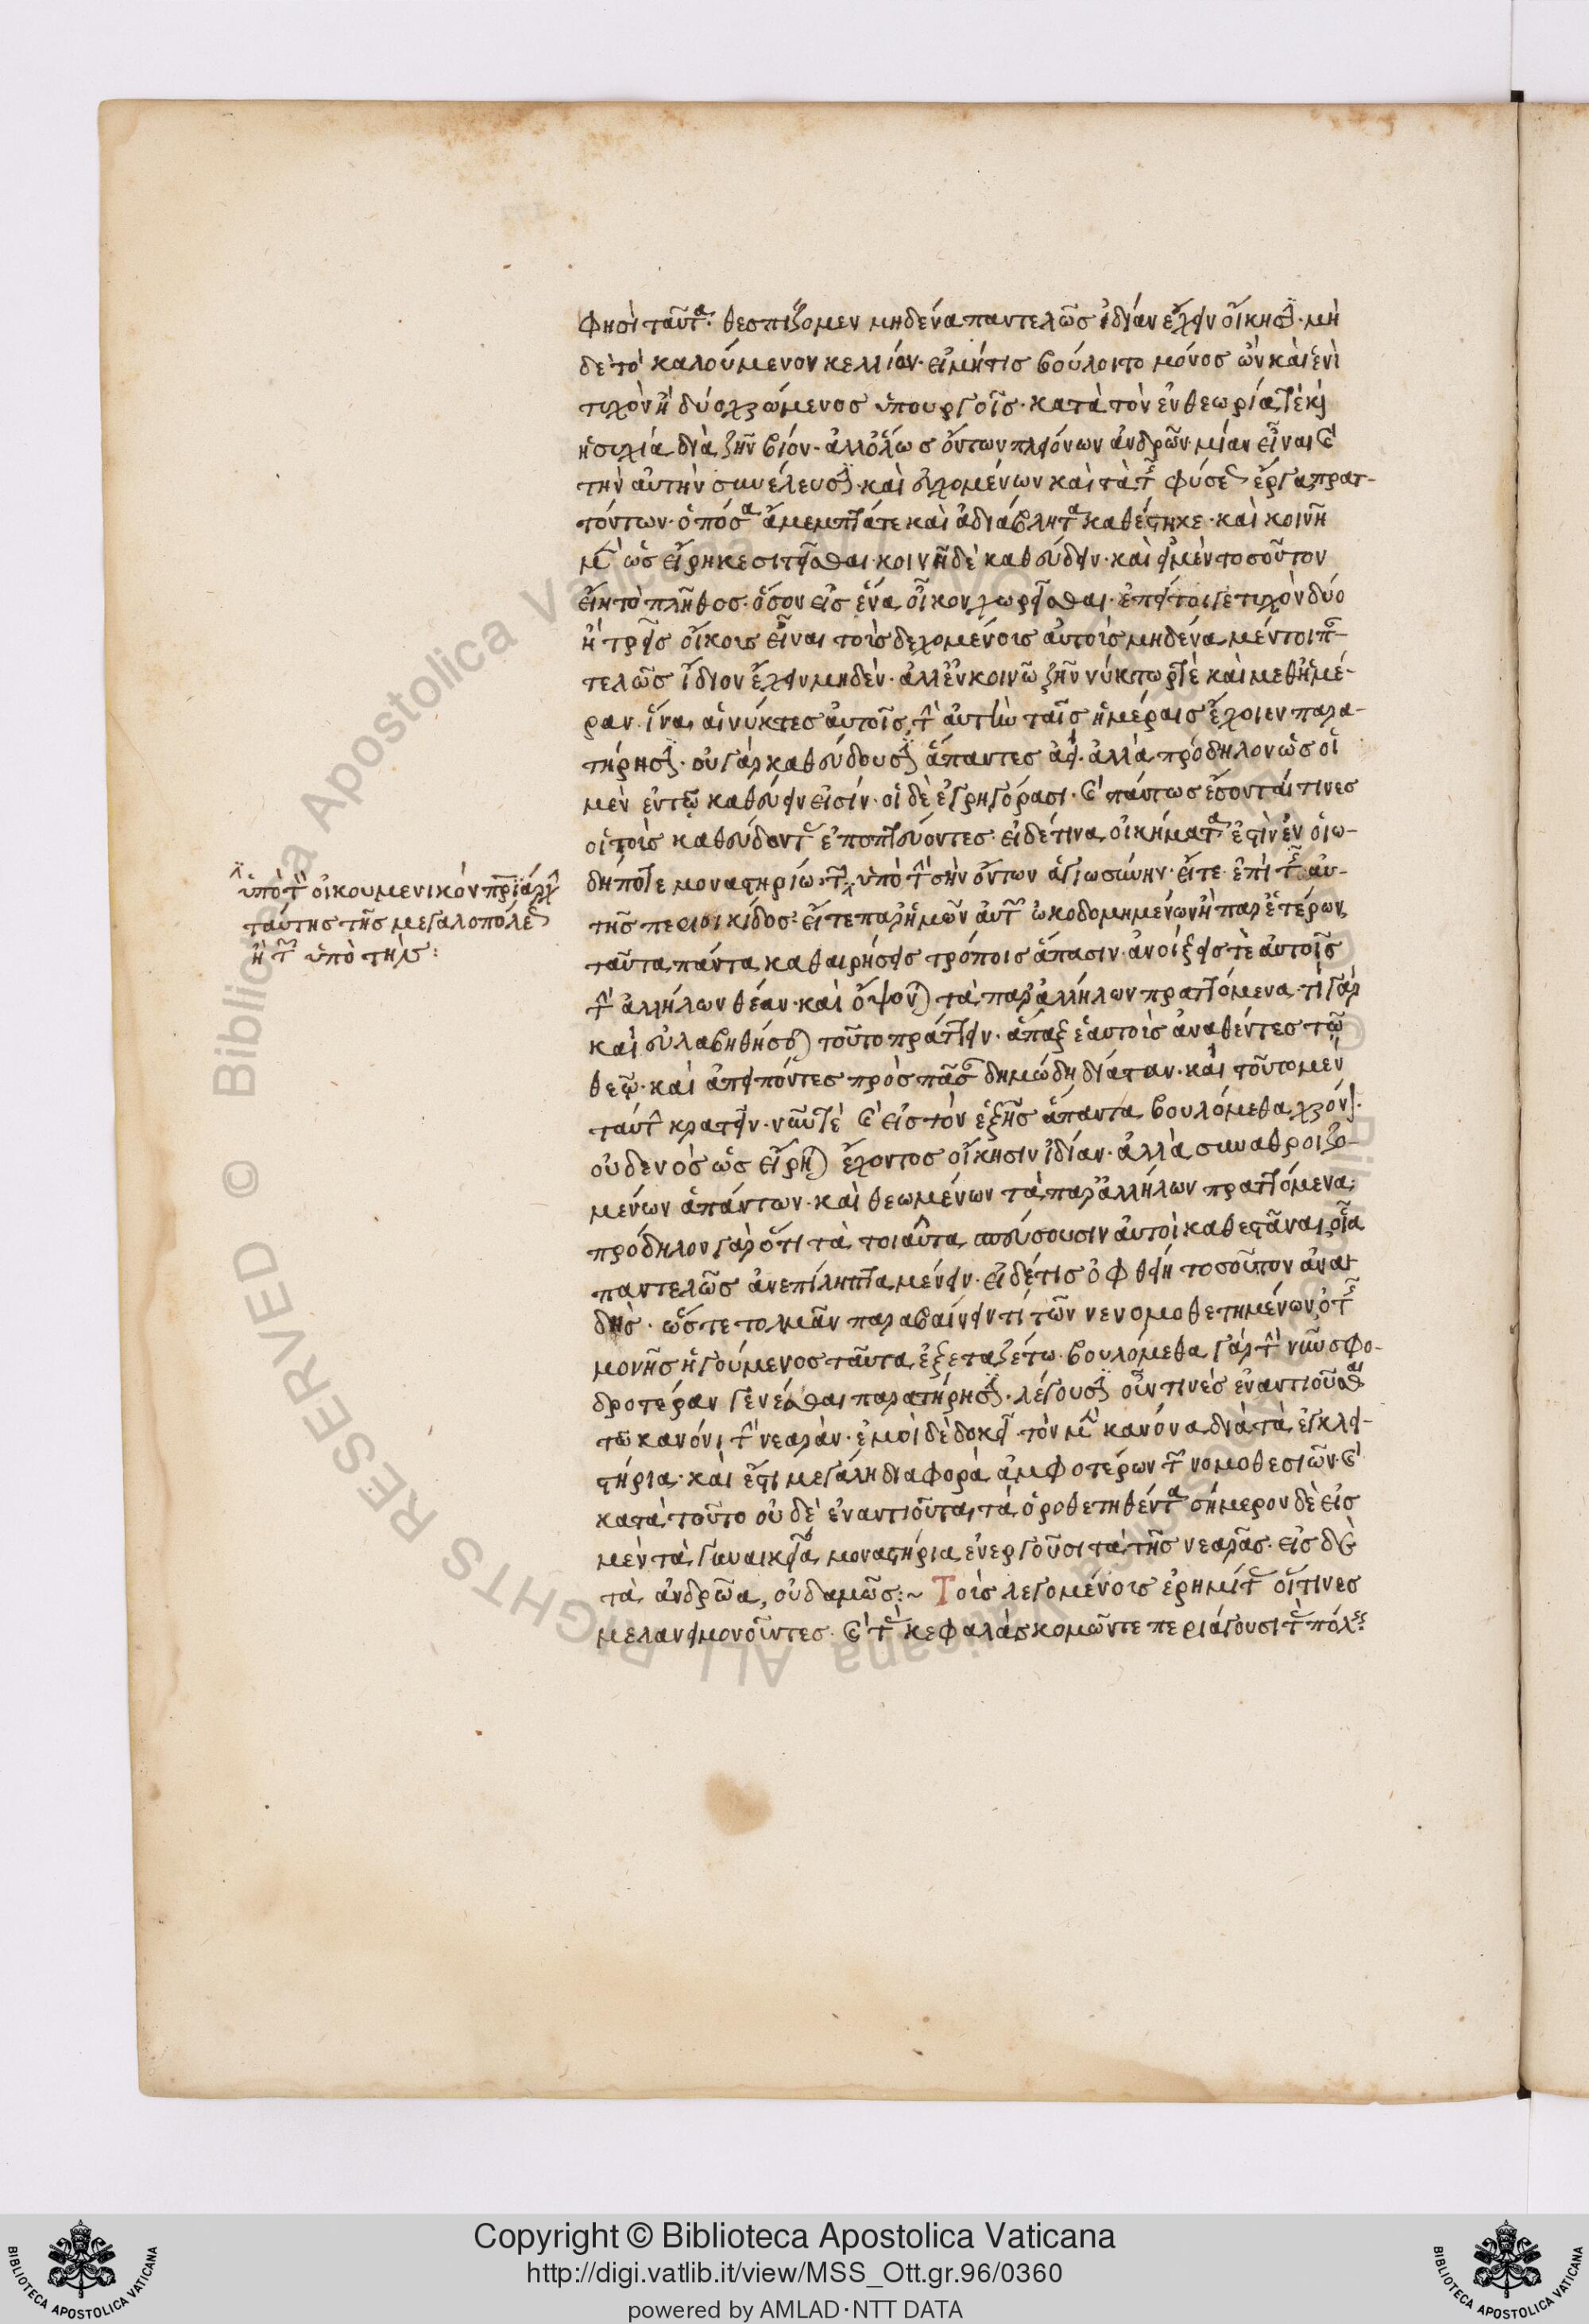 φησὶ ταῦτα· θεσπίζομεν μηδένα παντελῶς ἰδίαν ἔχειν οἴκησιν· μὴ
δὲ τὸ καλούμενον κελλίον· εἰ μήτις βούλοιτο μόνος ὢν καὶ ἑνὶ
τυχὸν ἢ δύο χρώμενος ὑπουργοῖς· κατὰ τὸν ἐν θεωρία τὲ καὶ
ἡσυχία διαζῆν βίον· ἀλλ' ὅλως ὄντων πλειόνων ἀνδρῶν μίαν εἶναι καὶ
τὴν αὐτὴν συνέλευσιν· καὶ εὐχομένων καὶ τὰ τῆς φύσεως ἔργα πρατ-
τόντων· ὁπόσα ἄμεμπτά τε καὶ ἀδιάβλητα καθέστηκε· καὶ κοινῆ
μὲν ὡς εἴρηκε σιτεῖσθαι· κοινῆ δὲ καθεύδειν· καὶ εἰ μὲν τοσοῦτον
εἴη τὸ πλῆθος· ὅσον εἰς ἕνα οἶκον χωρεῖσθαι· ἐπεί τοι γε τυχὸν δύο
ἢ τρεῖς οἴκους εἶναι τοὺς δεχομένους αὐτοὺς μηδένα μέντοι παν-
τελῶς ἴδιον ἔχειν μηδὲν· ἀλλ' ἐν κοινῶ ζῆν νύκτωρ τὲ καὶ μεθ' ἡμέ-
ραν· ἵνα αἱ νύκτες αὐτοῖς τὴν αὐτὴν ταῖς ἡμέραις ἔχοιεν παρα-
τήρησιν· οὐ γὰρ καθεύδουσιν ἅπαντες ἀεί· ἀλλὰ πρόδηλον ὡς οἱ
μὲν ἐν τῶ καθεύδειν εἰσίν· οἱ δὲ ἐγρηγόρασι· καὶ πάντως ἔσονταί τινες
οἱ τοὺς καθεύδοντας ἐποπτεύοντες· εἰ δέ τινα οἰκήματα ἐστὶν ἐν οἱω-
δήποτε μοναστηρίω τῶν ὑπὸ τὴν σὴν ὄντων ἁγιωσύνην· εἴτε ἐπὶ τῆς αὐ-
τῆς περιοικίδος· εἴτε παρ' ἡμῶν αὐτῶν ὠκοδομημένων ἢ παρ' ἑτέρων
ταῦτα πάντα καθαιρήσεις τρόποις ἅπασιν· ἀνοίξεις τὲ αὐτοῖς
τὴν ἀλλήλων θέαν· καὶ ὄψονται τὰ παρ' ἀλλήλων πραττόμενα· τί γὰρ
καὶ εὐλαβηθήσονται τοῦτο πράττειν· ἅπαξ ἑαυτοὺς ἀναθέντες τῶ
θεῶ· καὶ ἀπειπόντες πρὸς πᾶσαν δημώδη δίαιταν· καὶ τοῦτο μὲν
ταύτη κρατεῖν· νῦν τὲ καὶ εἰς τὸν ἑξῆς ἅπαντα βουλόμεθα χρόνον·
οὐδενὸς ὡς εἴρηται ἔχοντος οἴκησιν ἰδίαν· ἀλλὰ συναθροιζο-
μένων ἁπάντων· καὶ θεωμένων τὰ παρ' ἀλλήλων πραττόμενα·
πρόδηλον γὰρ ὅτι τὰ τοιαῦτα σπεύσουσιν αὐτοὶ καθεστᾶναι, οἷα
παντελῶς ἀνεπίληπτα μένειν· εἰ δέ τις ὀφθείη τοσοῦτον ἀναι
δὴς· ὥστε τολμᾶν παραβαίνειν τί τῶν νενομοθετημένων, ὁ τῆς
μονῆς ἡγούμενος ταῦτα ἐξεταζέτω· βουλόμεθα γὰρ τὴν νῦν σφο-
δροτέραν γενέσθαι παρατήρησιν· λέγουσιν οὖν τινὲς ἐναντιοῦσθαι
τῶ κανόνι τὴν νεαρὰν· ἐμοὶ δὲ δοκεῖ τὸν μὲν κανόνα διὰ τὰ ἐγκλει-
στήρια· καὶ ἔστι μεγάλη διαφορὰ ἀμφοτέρων τῶν νομοθεσιῶν· καὶ
κατὰ τοῦτο οὐδὲ ἐναντιοῦται τὰ ὁροθετηθέντα σήμερον δὲ εἰς
μὲν τὰ γυναικεῖα μοναστήρια ἐνεργοῦσι τὰ τῆς νεαρᾶς· εἰς δὲ
τὰ ἀνδρῶα, οὐδαμῶς:~ Τοὺς λεγομένους ἐρημίτας οἵτινες
μελανειμονοῦντες· καὶ τὰς κεφαλὰς κομῶντε περιάγουσι τὰς πόλεις
ὑπὸ τὸν οἰκουμενικὸν πατριάρχην
ταύτης τῆς μεγαλοπόλεως
ἢ τῶν ὑπὸ τὴν:
Copyright © Biblioteca Apostolica Vaticana
http://digi.vatlib.it/view/MSS_Ott.gr.96/0360
powered by AMLAD·NTT DATA